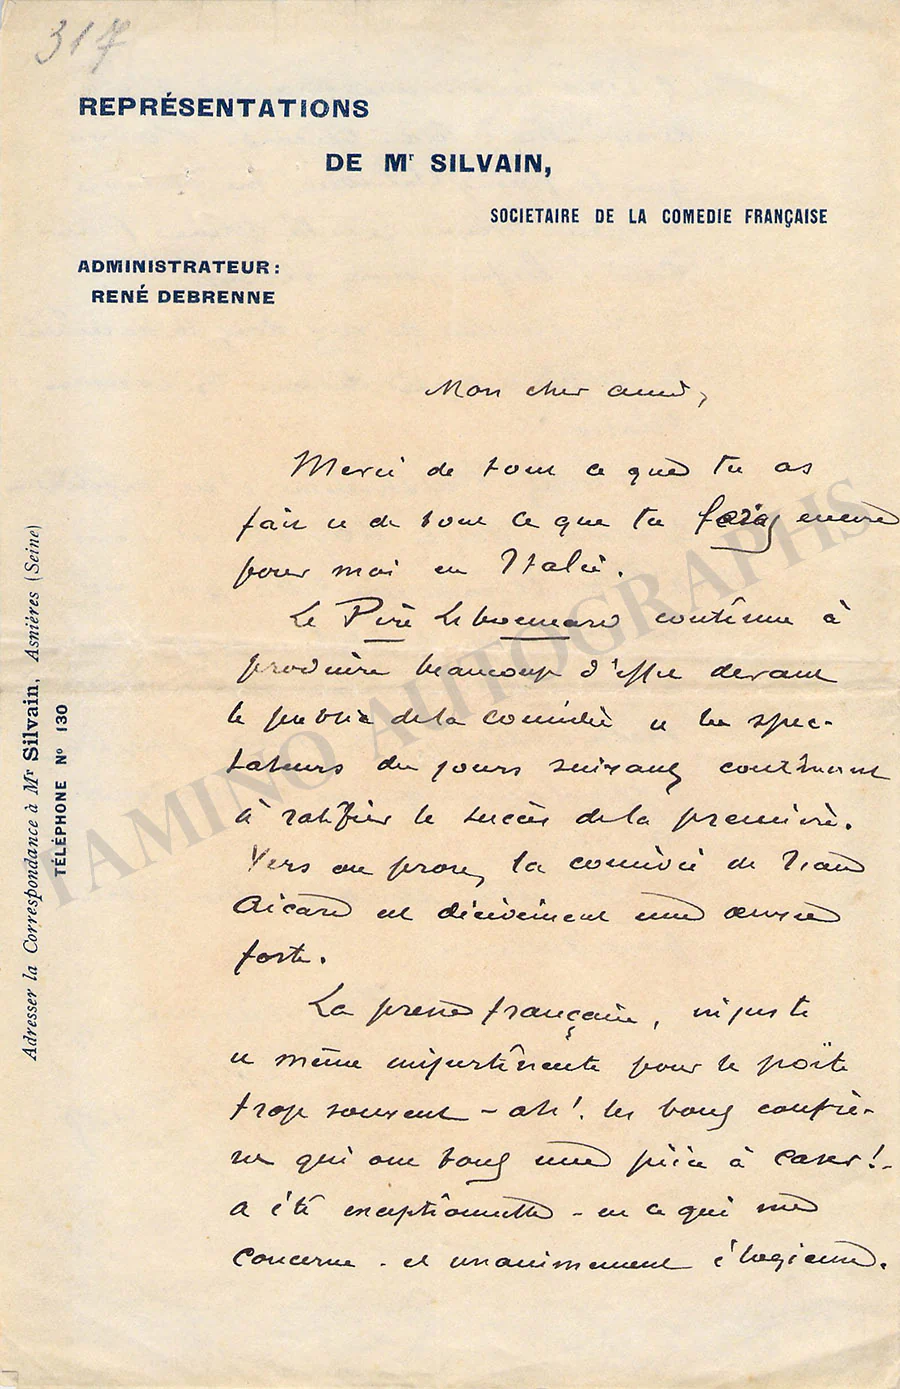 317
REPRÉSENTATIONS
DE Mr SILVAIN,
SOCIETAIRE DE LA COMEDIE FRANÇAISE
ADMINISTRATEUR:
RENÉ DEBRENNE
Adresser la Correspondance à Mr Silvain, Asnières (Seine)
TÉLÉPHONE No 130
Mon cher ami,
Merci de tout ce que tu as
fait et de tout ce que tu feras encore
pour moi en Italie.
Le Père Lebonnard continue à
produire beaucoup d'effet devant
le public de la comédie et les spec-
tateurs des jours suivants continuent
à ratifier le succès de la première.
Vers ou prose, la comédie de Jean
Aicard est décidément une œuvre
forte.
La presse française, injuste
et même impertinente pour le poëte
trop souvent - ah! les bons confrè-
res qui ont tous une pièce à caser! -
a été exceptionnelle - en ce qui me
concerne - et unanimement élogieuse.
TAMINO AUTOGRAPHS